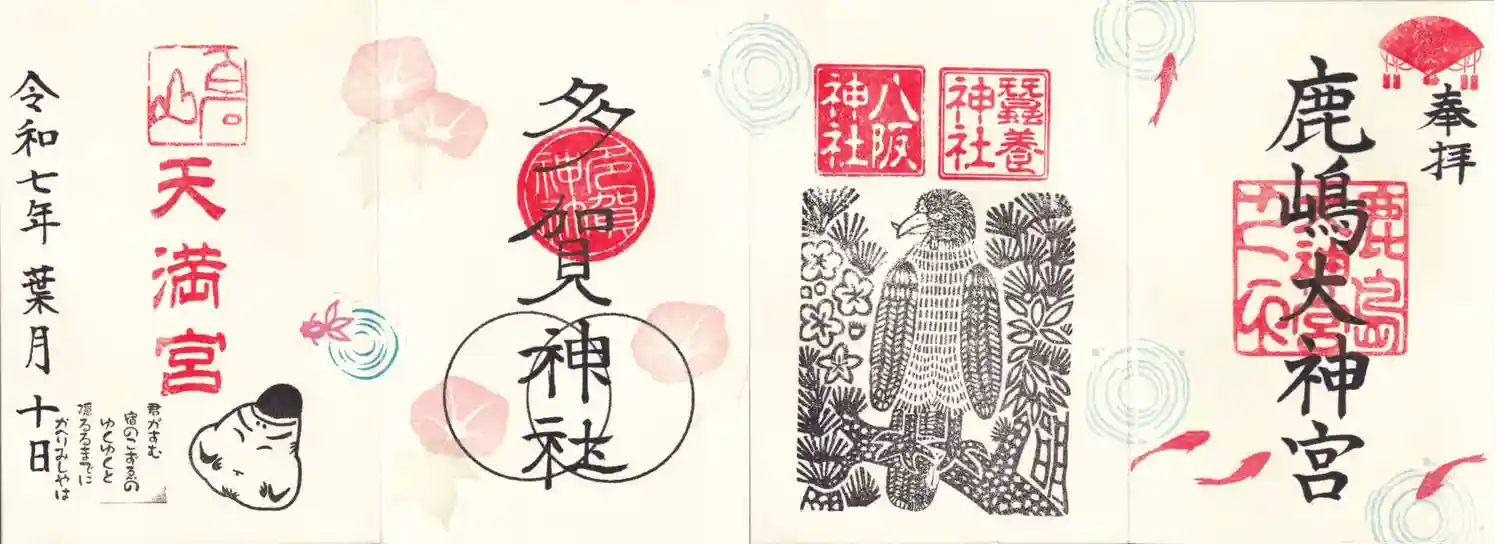 奉拝
鹿嶋大神宮
蠶養
神社
八阪
神社
多賀神社
天満宮
君がすむ
宿のこずゑの
ゆくゆくと
隠るるまでに
かへりみしやは
令和七年 葉月 十日